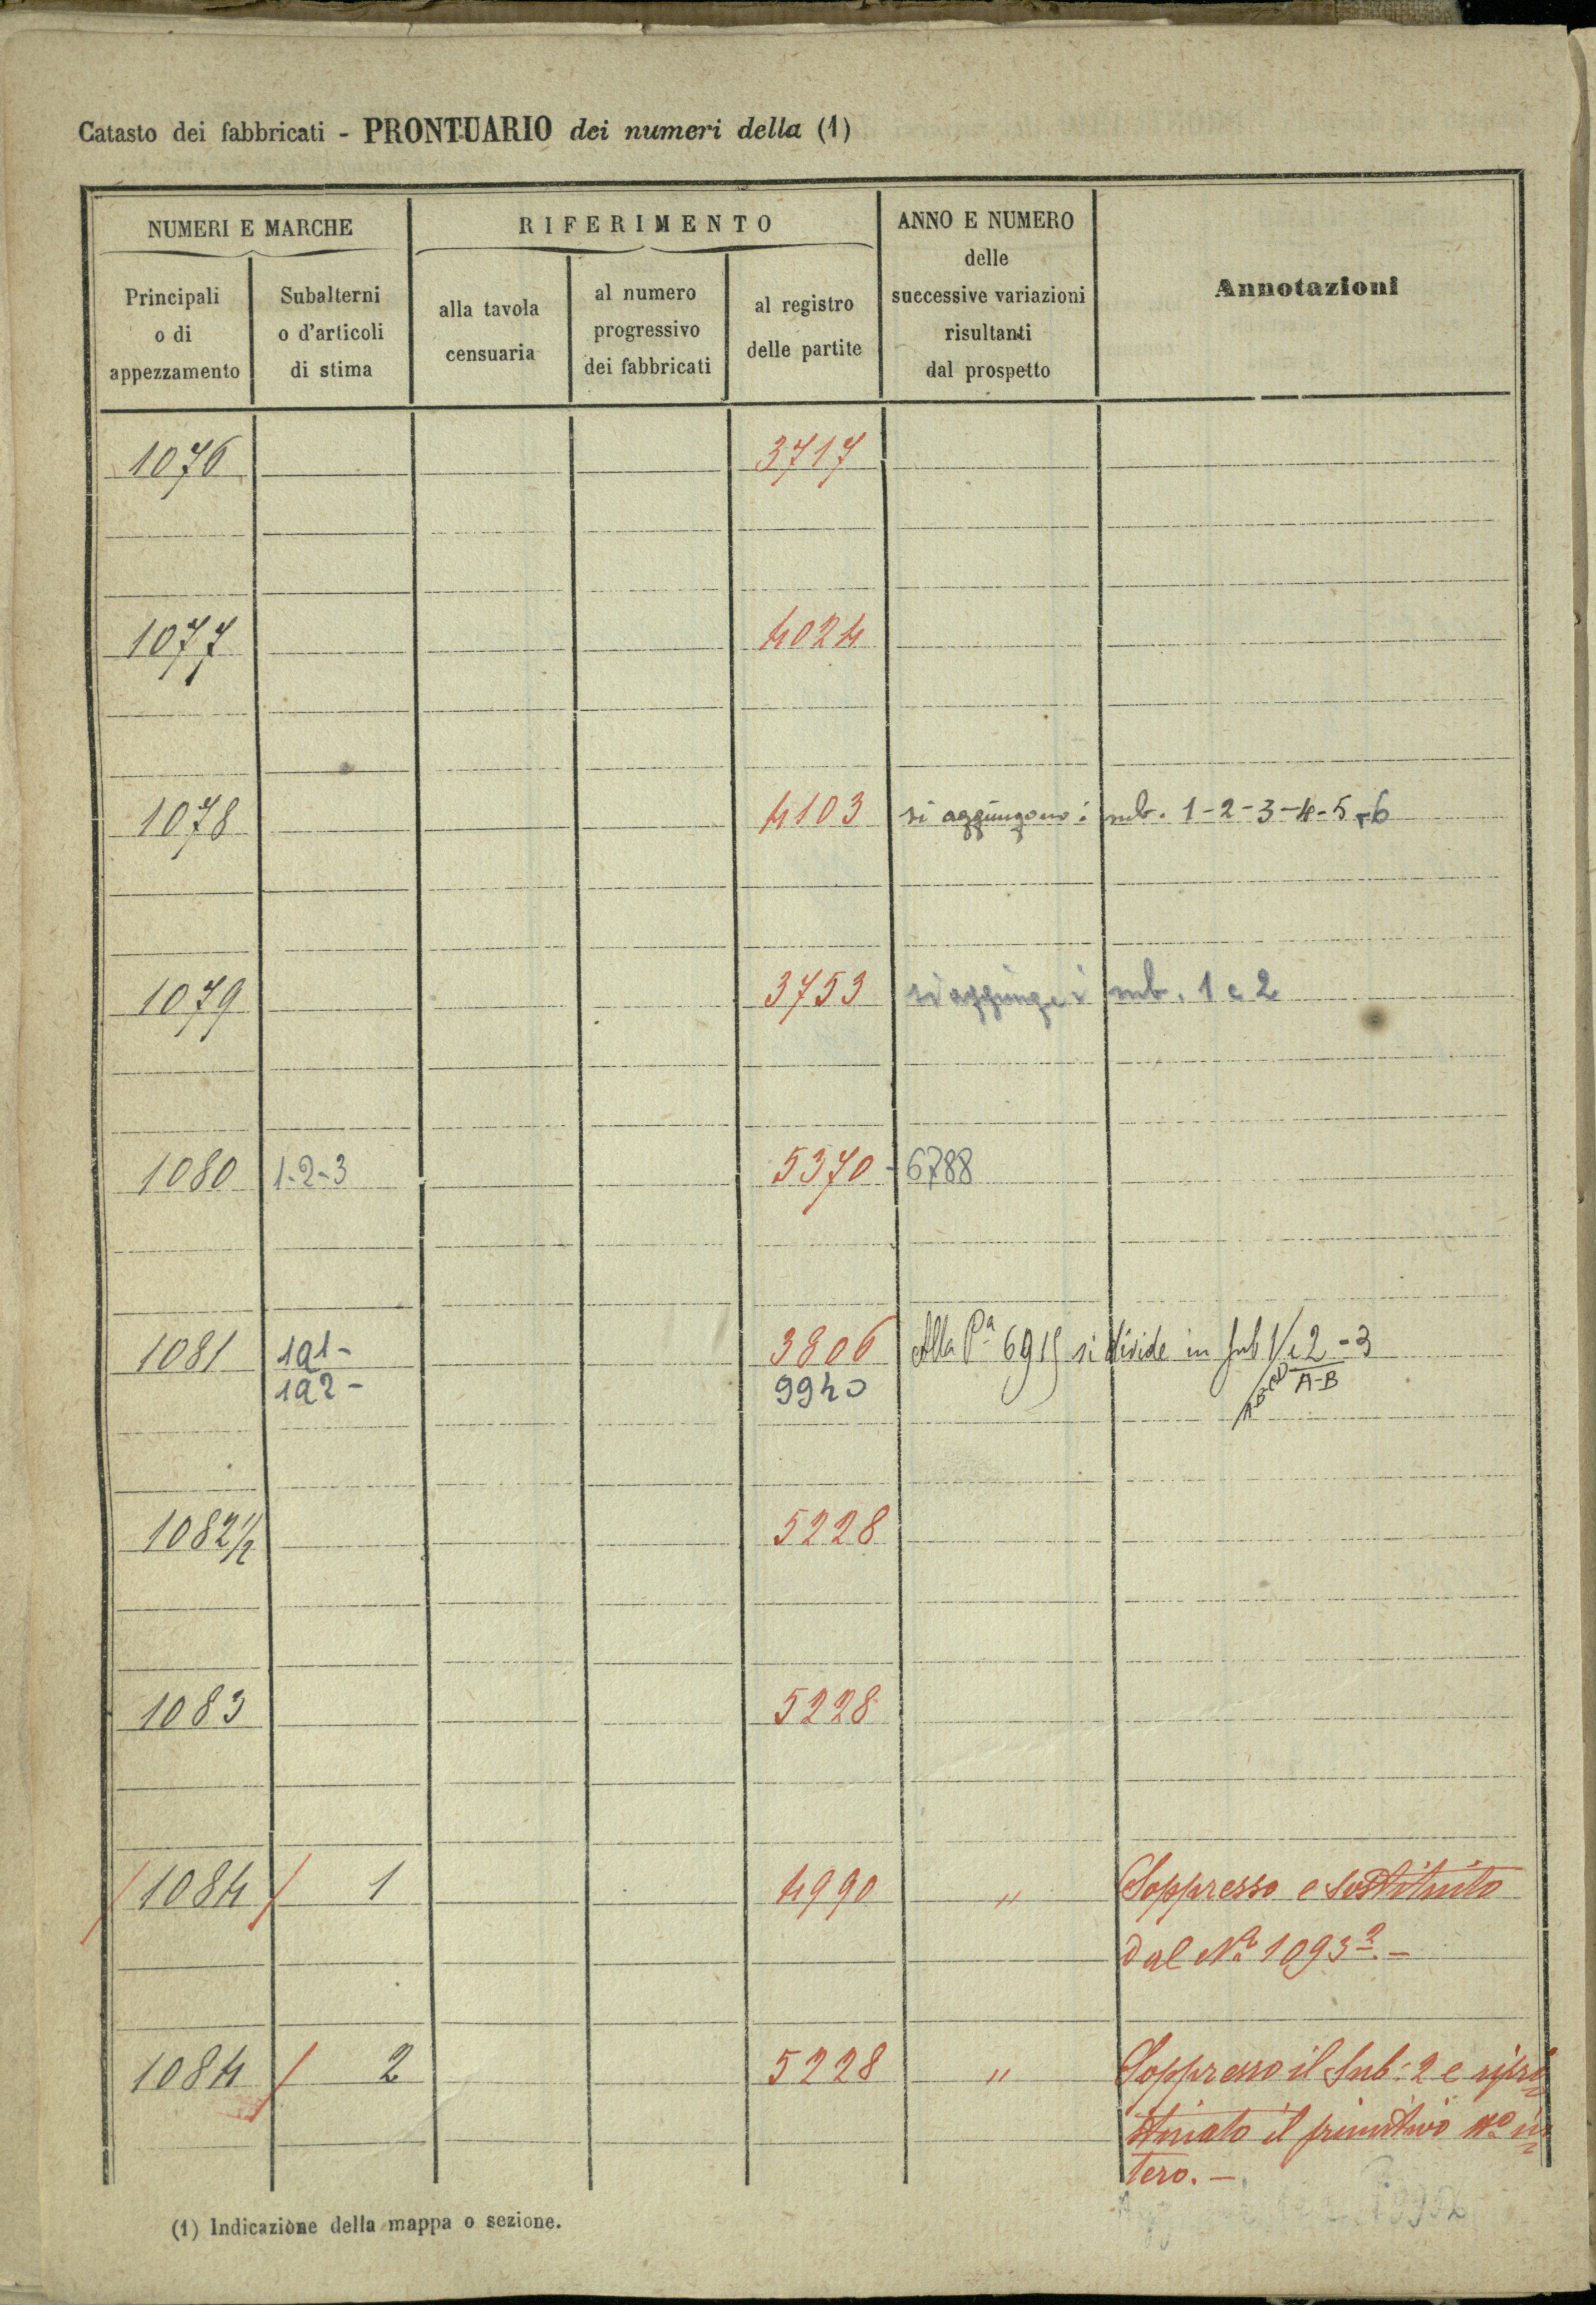 Catasto dei fabbricati - PRONTUARIO dei numeri della (1)
NUMERI E MARCHE
RIFERIMENTO
ANNO E NUMERO
delle
successive variazioni
risultanti
dal prospetto
Annotazioni
Principali
o di
appezzamento
Subalterni
o d'articoli
di stima
alla tavola
censuaria
al numero
progressivo
dei fabbricati
al registro
delle partite
1076 3717
1077 4024
1078 4103 si aggiungono i sub. 1-2-3-4-5-6
1079 3753 si aggiunge i sub. 1 e 2
1080 1-2-3 5370 - 6788
1081 1a1- 3806 Alla Pª 6915 si divide in sub 1 e 2 - 3
1a2 - 9940 A-B
1082 1/2 5228
1083 5228
1084 / 1 4990 " Soppresso e sostituito
dal Nº 1093 2 -
1084 / 2 5228 " Soppresso il Sub: 2 e ripri=
stinato il primitivo Nº in=
tero. -
(1) Indicazione della mappa o sezione.